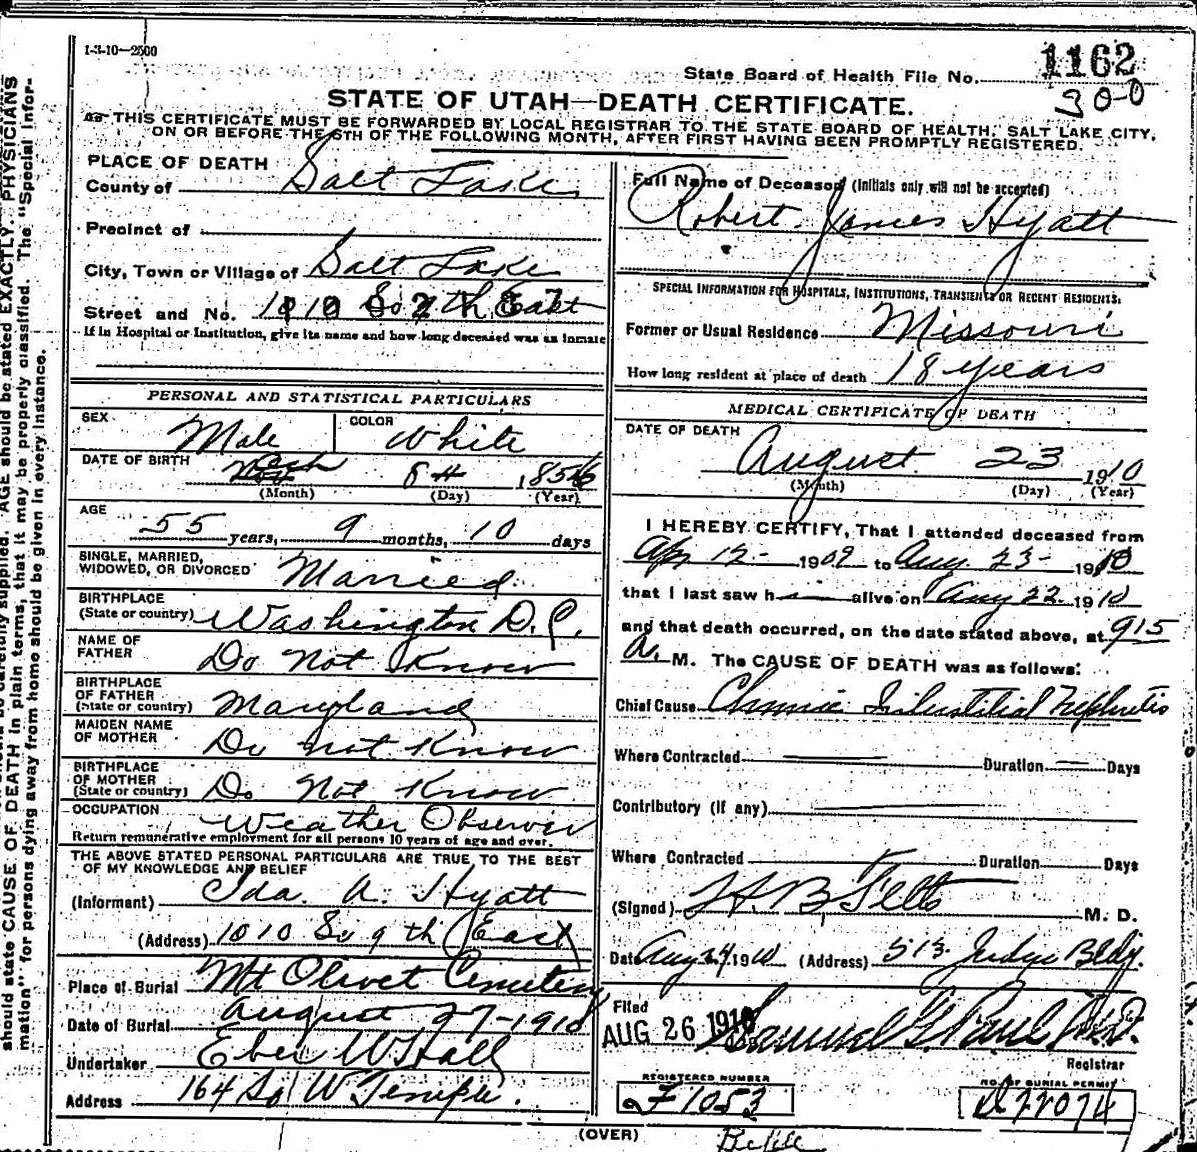 1-3-10—2500
State Board of Health File No. 1162
300
STATE OF UTAH—DEATH CERTIFICATE.
THIS CERTIFICATE MUST BE FORWARDED BY LOCAL REGISTRAR TO THE STATE BOARD OF HEALTH, SALT LAKE CITY,
ON OR BEFORE THE 5TH OF THE FOLLOWING MONTH, AFTER FIRST HAVING BEEN PROMPTLY REGISTERED.
PLACE OF DEATH
County of Salt Lake
Precinct of
City, Town or Village of Salt Lake
Street and No. 1010 So 9th East
If in Hospital or Institution, give its name and how long deceased was an inmate
PERSONAL AND STATISTICAL PARTICULARS
SEX Male COLOR White
DATE OF BIRTH
(Month) (Day) (Year)
AGE 55 years, 9 months, 10 days
SINGLE, MARRIED,
WIDOWED, OR DIVORCED Married
BIRTHPLACE
(State or country) Washington D.C.
NAME OF
FATHER Do Not Know
BIRTHPLACE
OF FATHER
(State or country) Maryland
MAIDEN NAME
OF MOTHER Do not Know
BIRTHPLACE
OF MOTHER
(State or country) Do Not Know
OCCUPATION Weather Observer
Return remunerative employment for all persons 10 years of age and over.
THE ABOVE STATED PERSONAL PARTICULARS ARE TRUE TO THE BEST
OF MY KNOWLEDGE AND BELIEF
(Informant) Ida. A. Hyatt
(Address) 1010 So 9th East
Place of Burial Mt Olivet Cemetery
Date of Burial August 27-1910
Undertaker Eber W Hall
Address 164 So W Temple.
Full Name of Deceased (Initials only will not be accepted)
Robert James Hyatt
SPECIAL INFORMATION FOR HOSPITALS, INSTITUTIONS, TRANSIENTS OR RECENT RESIDENTS.
Former or Usual Residence Missouri
How long resident at place of death 18 years
MEDICAL CERTIFICATE OF DEATH
DATE OF DEATH
August 23 1910
(Month) (Day) (Year)
I HEREBY CERTIFY, That I attended deceased from
Apr 12 1909 to Aug. 23 1910
that I last saw h im alive on Aug 22 1910
and that death occurred, on the date stated above, at 915
A. M. The CAUSE OF DEATH was as follows:
Chief Cause Chronic Interstitial Nephritis
Where Contracted Duration Days
Contributory (if any)
Where Contracted Duration Days
(Signed) H. B. Felts M. D.
Date Aug 24 1910 (Address) 513 Judge Bldg.
Filed
AUG 26 1910 Samuel G. Paul
Registrar
REGISTERED NUMBER
F1053
NO. OF BURIAL PERMIT
D22074
(OVER)
should state CAUSE OF DEATH in plain terms, that it may be properly classified. The "Special Infor-
mation" for persons dying away from home should be given in every instance.
supplied. AGE should be stated EXACTLY. PHYSICIANS